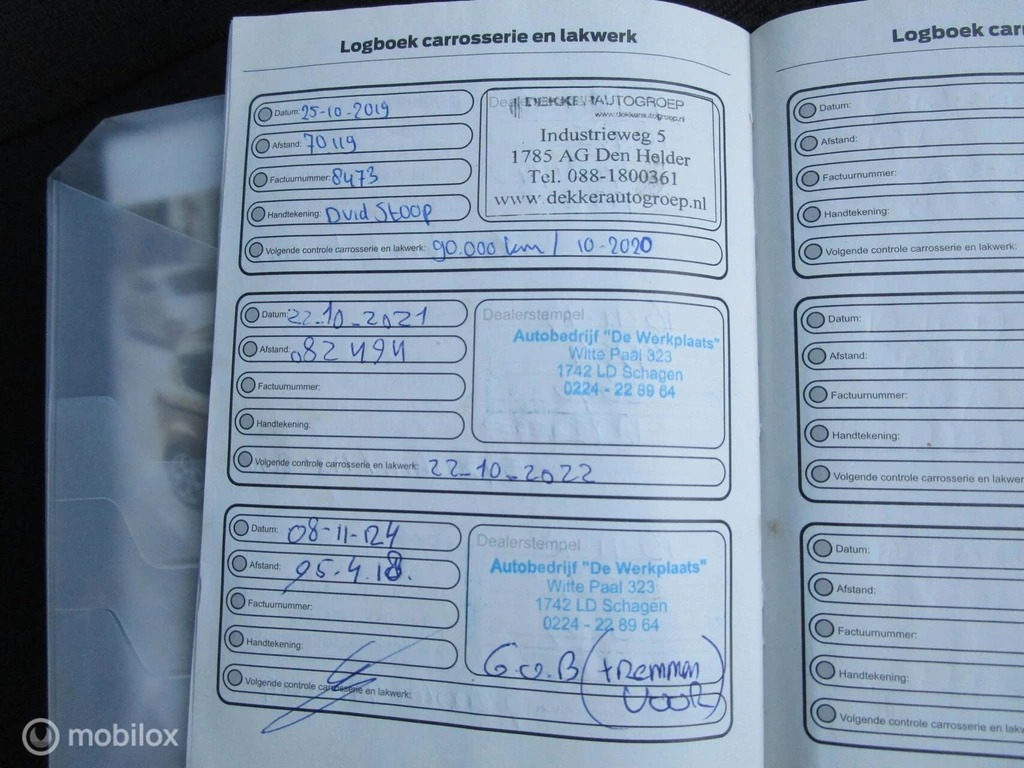 Logboek carrosserie en lakwerk
Datum: 25-10-2019
Afstand: 70119
Factuurnummer: 8473
Handtekening: Dvid Stoop
Volgende controle carrosserie en lakwerk: 90.000 km / 10-2020
DEKKERAUTOGROEP
www.dekkerautogroep.nl
Industrieweg 5
1785 AG Den Helder
Tel. 088-1800361
www.dekkerautogroep.nl
Datum: 22-10-2021
Afstand: 082494
Factuurnummer:
Handtekening:
Volgende controle carrosserie en lakwerk: 22-10-2022
Dealerstempel
Autobedrijf "De Werkplaats"
Witte Paal 323
1742 LD Schagen
0224 - 22 89 64
Datum: 08-11-'24
Afstand: 95.418.
Factuurnummer:
Handtekening:
Volgende controle carrosserie en lakwerk:
Dealerstempel
Autobedrijf "De Werkplaats"
Witte Paal 323
1742 LD Schagen
0224 - 22 89 64
G.o.B (+Remmen
Voor)
Logboek car
Datum:
Afstand:
Factuurnummer:
Handtekening:
Volgende controle carrosserie en lakwerk:
Datum:
Afstand:
Factuurnummer:
Handtekening:
Volgende controle carrosserie en lakwer
Datum:
Afstand:
Factuurnummer:
Handtekening:
Volgende controle carrosserie en lakw
mobilox